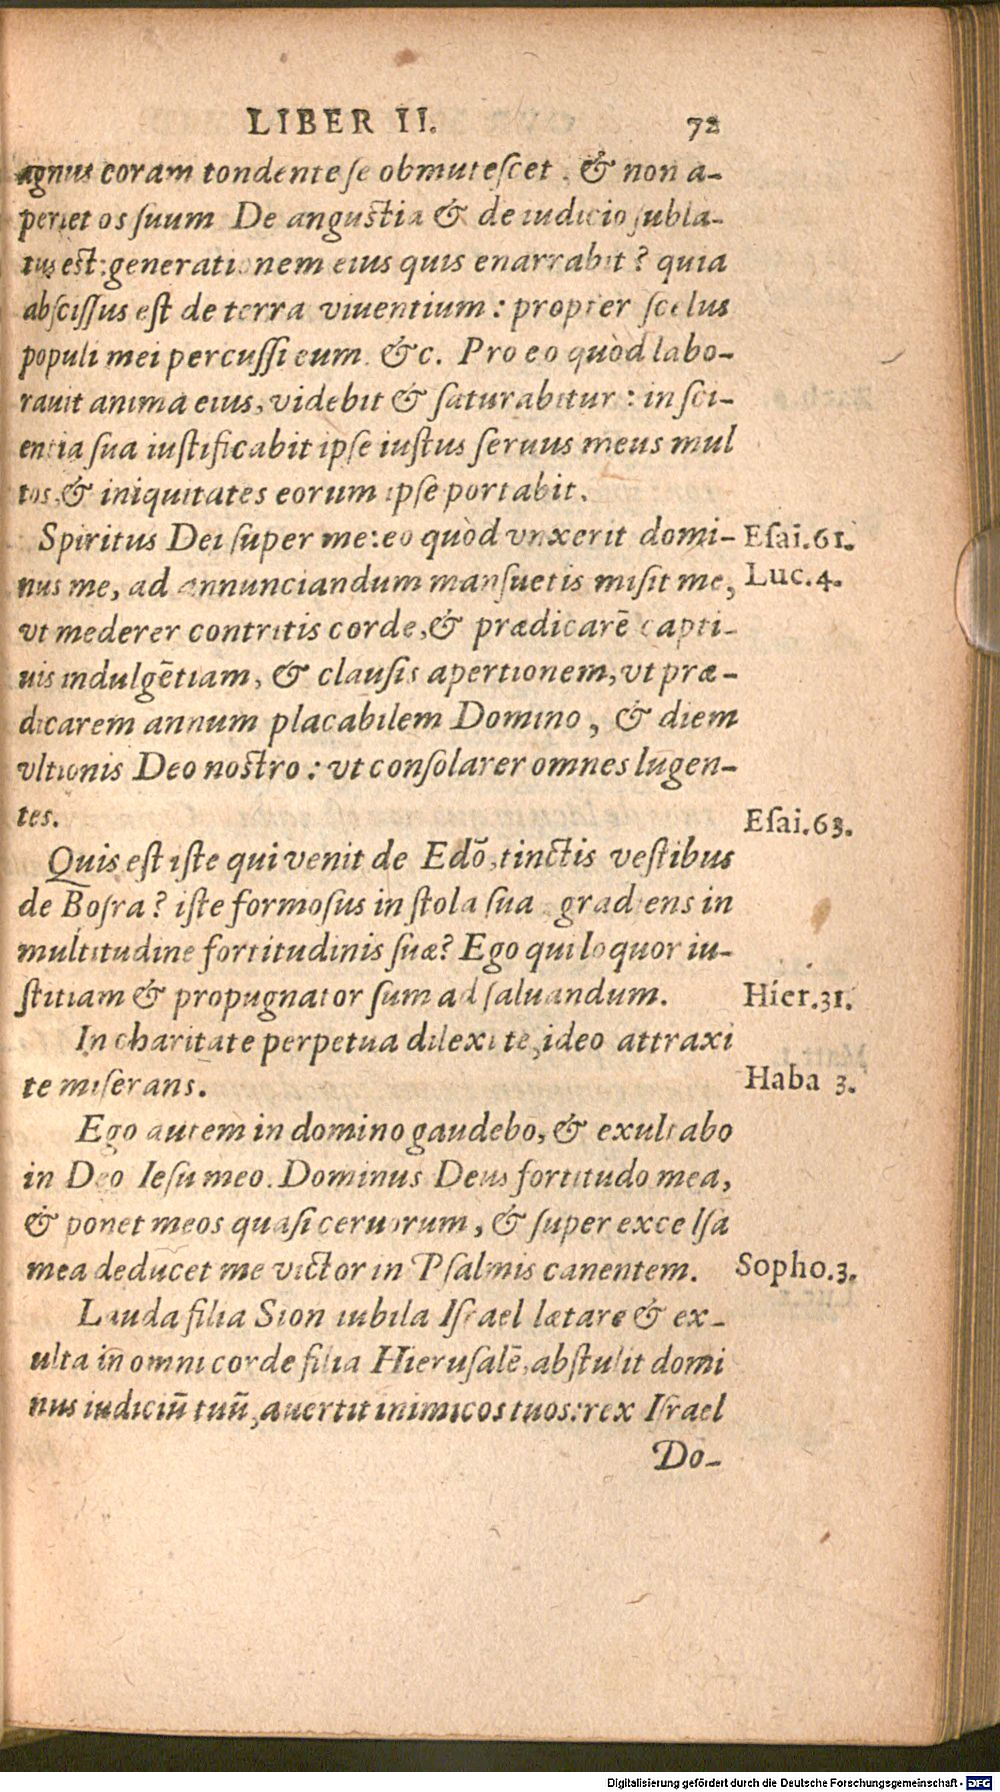 LIBER II. 72
agnus coram tondente se obmutescet. & non a-
periet os suum De angustia & de iudicio subla-
tus est: generationem eius quis enarrabit? quia
abscissus est de terra viuentium: propter scelus
populi mei percussi eum. &c. Pro eo quòd labo-
rauit anima eius, videbit & saturabitur: in sci-
entia sua iustificabit ipse iustus seruus meus mul
tos, & iniquitates eorum ipse portabit.
Spiritus Dei super me: eo quòd vnxerit domi- Esai.61.
nus me, ad annunciandum mansuetis misit me, Luc.4.
vt mederer contritis corde, & prædicarē capti-
uis indulgētiam, & clausis apertionem, vt præ-
dicarem annum placabilem Domino, & diem
vltionis Deo nostro: vt consolarer omnes lugen-
tes.
Esai.63.
Quis est iste qui venit de Edō, tinctis vestibus
de Bosra? iste formosus in stola sua gradiens in
multitudine fortitudinis suæ? Ego qui loquor iu-
stitiam & propugnator sum ad saluandum. Hier.31.
In charitate perpetua dilexi te, ideo attraxi
te miserans. Haba 3.
Ego autem in domino gaudebo, & exultabo
in Deo Iesu meo. Dominus Deus fortitudo mea,
& ponet meos quasi ceruorum, & super excelsa
mea deducet me victor in Psalmis canentem. Sopho.3.
Lauda filia Sion iubila Israel lætare & ex-
ulta in omni corde filia Hierusalē, abstulit domi
nus iudiciū tuū, auertit inimicos tuos: rex Israel
Do-
Digitalisierung gefördert durch die Deutsche Forschungsgemeinschaft - DFG